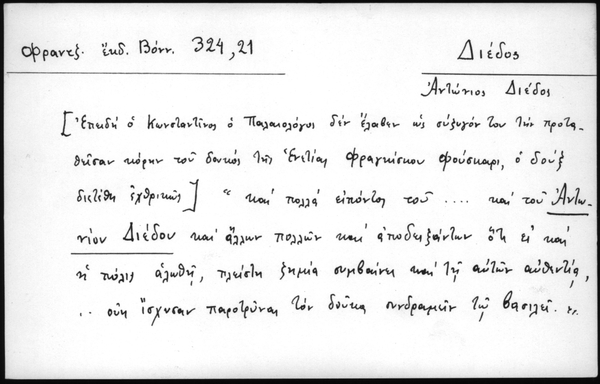 Φραντζ. ἔκδ. Βόνν. 324,21
Διέδος
Ἀντώνιος Διέδος
[Ἐπειδὴ ὁ Κωνσταντῖνος ὁ Παλαιολόγος δὲν ἔλαβεν ὡς σύζυγόν του τὴν προτα-
θεῖσαν κόρην τοῦ δουκὸς τῆς Ἑνετίας Φραγκίσκου Φούσκαρι, ὁ δοὺξ
διετέθη ἐχθρικῶς] " καὶ πολλὰ εἰπόντος τοῦ .... καὶ τοῦ Ἀντω-
νίου Διέδου καὶ ἄλλων πολλῶν καὶ ἀποδειξάντων ὅτι εἰ καὶ
ἡ πόλις ἁλωθῇ, πλείστη ζημία συμβαίνει καὶ τῇ αὐτῶν αὐθεντίᾳ,
.. οὐκ ἴσχυσαν παροτρῦναι τὸν δοῦκα συνδραμεῖν τῷ βασιλεῖ.